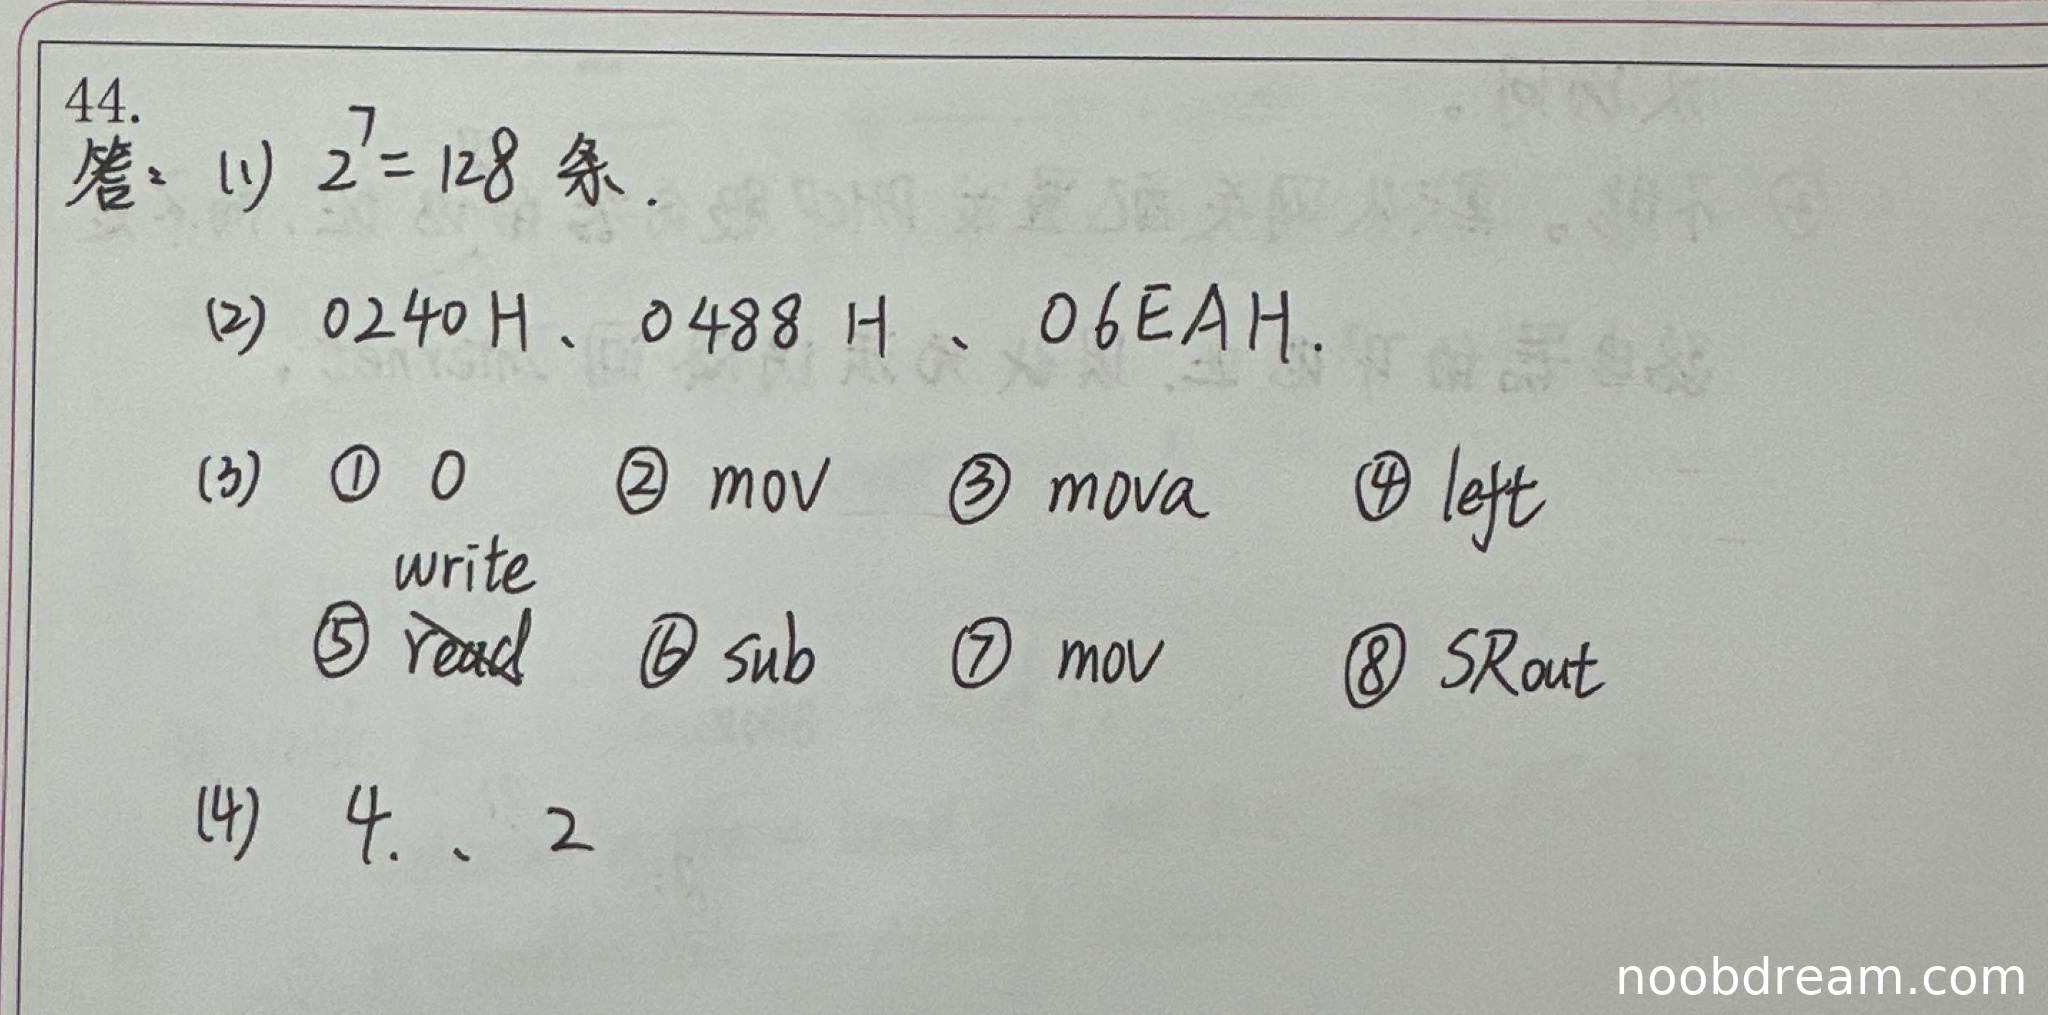 44.
答: (1) 2⁷ = 128 条.
(2) 0240H、0488H、06EAH.
(3) ① 0 ② mov ③ mova ④ left
write
⑤ read ⑥ sub ⑦ mov ⑧ SRout
(4) 4.、2
noobdream.com